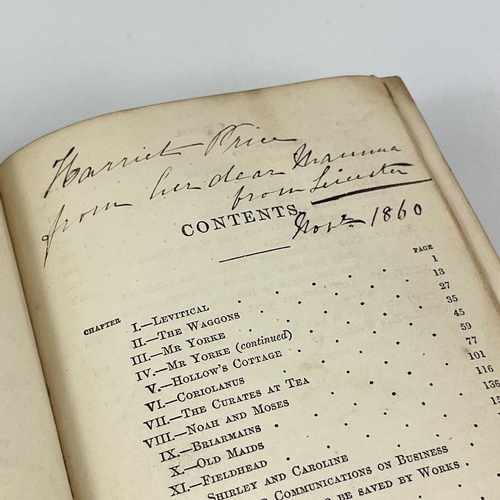 Harriet Price
from her dear Mamma
from Leicester
Novr 1860
CONTENTS
PAGE
CHAPTER I.—LEVITICAL 1
II.—THE WAGGONS 13
III.—MR YORKE 27
IV.—MR YORKE (continued) 35
V.—HOLLOW'S COTTAGE 45
VI.—CORIOLANUS 59
VII.—THE CURATES AT TEA 77
VIII.—NOAH AND MOSES 101
IX.—BRIARMAINS 116
X.—OLD MAIDS 136
XI.—FIELDHEAD
SHIRLEY AND CAROLINE
COMMUNICATIONS ON BUSINESS
TO BE SAVED BY WORKS